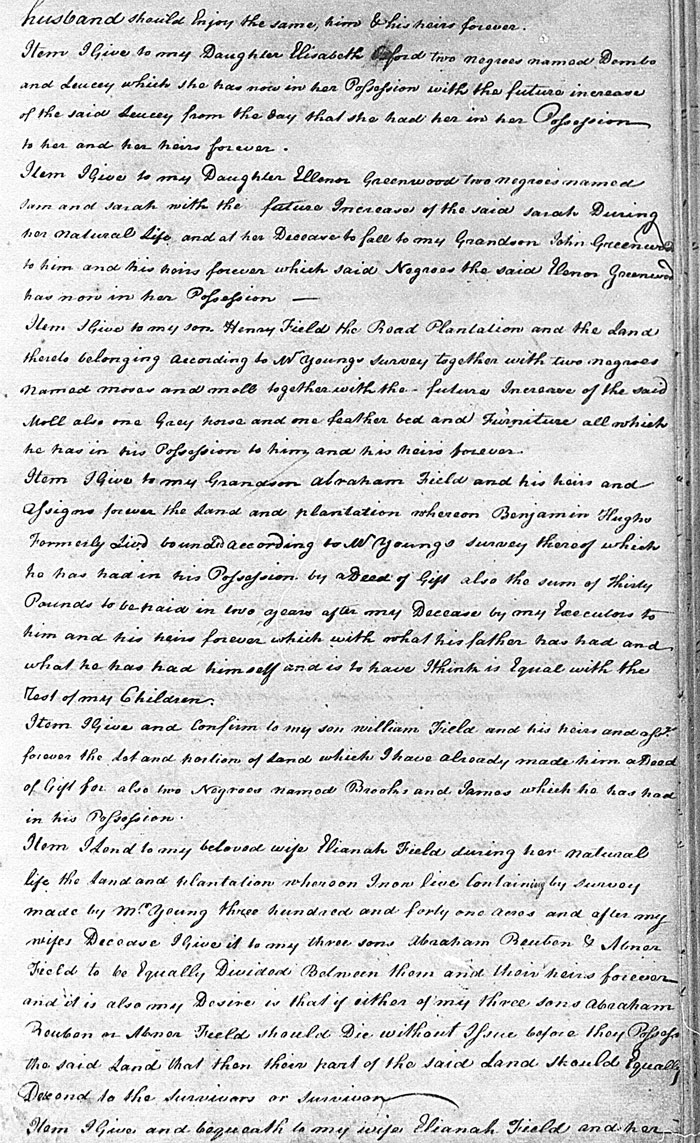 husband should Enjoy the same, him & his heirs forever.
Item I Give to my Daughter Elisabeth two negroes named Dombo
and Leucey which she has now in her Possession with the future increase
of the said Leucey from the day that she had her in her Possession
to her and her heirs forever.
Item I Give to my Daughter Ellenor Greenwood two negroes named
sam and sarah with the future Increase of the said sarah During
her natural Life and at her Decease to fall to my Grandson John Greenwood
to him and his heirs forever which said Negroes the said Elenor Greenwood
has now in her Possession —
Item I Give to my son Henry Field the Road Plantation and the Land
thereto belonging according to Mr Youngs survey together with two negroes
named moses and moll together with the future Increase of the said
Moll also one Grey horse and one feather bed and Furniture all which
he has in his Possession to him and his heirs forever.
Item I Give to my Grandson abraham Field and his heirs and
assigns forever the Land and plantation whereon Benjamin Hughs
Formerly Liv'd bound according to Mr Youngs survey thereof which
he has had in his Possession by a Deed of Gift also the sum of Thirty
Pounds to be paid in two years after my Decease by my Executors to
him and his heirs forever which with what his father has had and
what he has had himself and is to have I think is Equal with the
Rest of my Children.
Item I Give and Confirm to my son william Field and his heirs and
forever the Lot and portion of Land which I have already made him a Deed
of Gift for also two Negroes named Brooks and James which he has had
in his Possession.
Item I Lend to my beloved wife Elianah Field during her natural
life the Land and plantation whereon I now live Containing by survey
made by Mr Young three hundred and forty one acres and after my
wifes Decease I Give it to my three sons Abraham Reuben & Abner
Field to be Equally Divided Between them and their heirs forever
and it is also my Desire is that if either of my three sons Abraham
Reuben or Abner Field should Die without Issue before they Possess
the said Land that then their part of the said Land should Equally
Decend to the survivors or survivor
Item I Give and bequeath to my wife Elianah Field and her